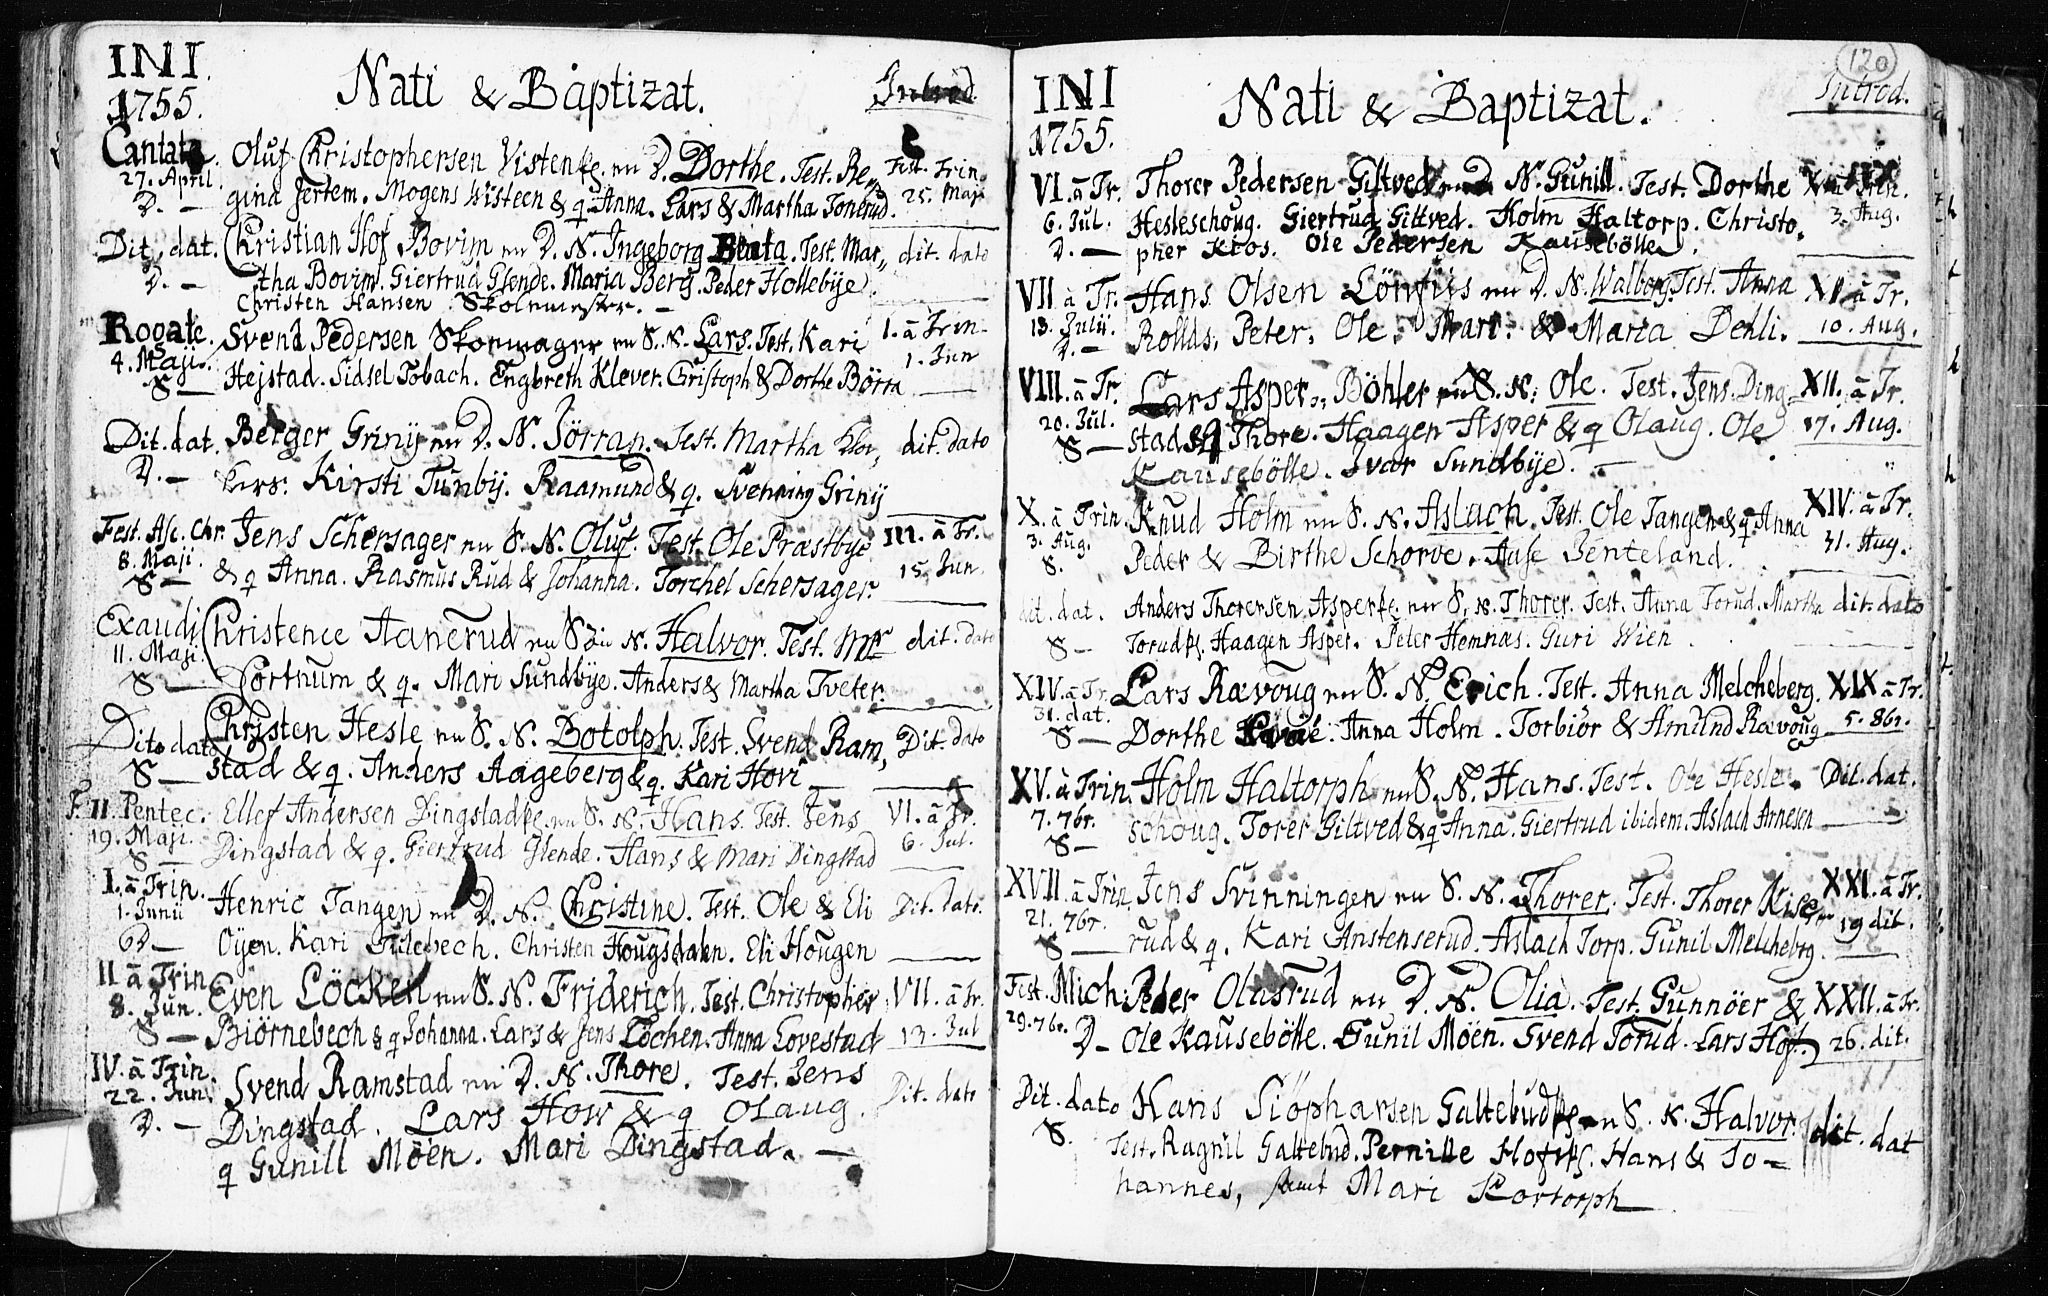 INI.
1755.
Nati & Baptizat.
Introd
Cantate. Oluf Christophersen Vistenke. nu D. Dorthe. Test. Re, Fest. Trin.
27. April. gina Jertem. Mogens Wisteen & q. Anna. Lars & Martha Tontrud. 25. Maj
D. —
Dit. dat. Christian Hof Bovim nu D. N. Ingeborg Beata. Test. Mar, dit. dato
D. — tha Bovim. Giertrud Glende. Maria Berg. Peder Hollebye
Christen Hansen Skolemester. —
Rogate. Svend Pedersen Skomager nu S. N. Lars. Test. Kari I. à Trin
4. Maji. Hejstad. Sidsel Tobach. Engbreth Klever. Christoph & Dorthe Börra 1. Jun
S —
Dit. dat. Berger Griny nu D. N. Jörran. Test. Martha dit. dato
D. — Kirsti Tunby. Raamund & q. Svenning Griny
Fest. Asc. Chr. Jens Schersager nu S. N. Oluf. Test. Ole Præstbye III. à Tr.
8. Maji. & q Anna. Rasmus Rud & Johanna. Torchel Schersager. 15. Jun.
S —
Exaudi Christence Aanerud nu N. Halvor. Test. Mr dit. dato
11. Maji. Fortnum & q. Mari Sundbye. Anders & Martha Tveter.
S —
Dito dato Christen Hesle nu S. N. Botolph. Test. Svend Ram, Dit. dato
S — stad & q. Anders Aageberg & q. Kari Hovi
F. II. Pentec. Ellef Andersen Dingstadke. nu S. N. Hans. Test. Jens VI. à Tr.
19. Maji. Dingstad & q. Giertrud Glende. Hans & Mari Dingstad 6. Jul.
S —
I. à Trin. Henric Tangen nu D. N. Christine. Test. Ole & Eli Dit. dato.
1. Junii Oyen. Kari Gulebech. Christen Hougsdalen. Eli Hougen
D —
II à Trin. Even Löcken nu S. N. Friderich. Test. Christopher VII. à Tr.
8. Jun. Biörnebech & q Johanna. Lars & Jens Löchen. Anna Lovestad 13. Jul
S —
IV. à Trin. Svend Ramstad nu D. N. Thore. Test. Jens Dit. dato
22. Jun. Dingstad. Lars How & q Olaug.
D. — q Gunill Möen. Mari Dingstad. —
120
INI
1755.
Nati & Baptizat.
Introd.
VI. à Tr. Thorer Pedersen Giltved nu D N. Gunill. Test. Dorthe Trin.
6. Jul. Hesleschoug. Giertrud Giltved. Holm Haltorp. Christo, 3. Aug.
D. — pher Kros. Ole Pedersen Kausebölle.
VII. à Tr. Hans Olsen Lönfiis nu D. N. Walborg. Test. Anna XI. à Tr.
13. Julii. Rollds. Peter. Ole. Mari. & Maria Dehli. 10. Aug.
D. —
VIII. à Tr. Lars Asper, Böhler nu S. N. Ole. Test. Jens Ding XII. à Tr.
20. Jul. stad & q Thore. Haagen Asper & q Olaug. Ole 17. Aug.
S — Kausebölle. Ivar Sundbye. —
X. à Trin. Knud Holm nu S. N. Aslach. Test. Ole Tangen & q Anna XIV. à Tr.
3. Aug. Peder & Birthe Schorve. Aase Benteland. 31. Aug.
S.
dit. dat. Anders Thorersen Asperke. nu S. N. Thorer. Test. Anna Torud. Martha dit. dato
S — Torudks. Haagen Asper. Peter Hemnæs. Guri Wien.
XIV. à Tr. Lars Rævoug nu S. N. Erich. Test. Anna Melcheberg. XIX à Tr.
31. dat. Dorthe Anna Holm. Torbiör & Amund Rævoug 5. 8br.
S —
XV. à Trin. Holm Haltorph nu S. N. Hans. Test. Ole Hesle, Dit. dat.
7. 7br. schoug. Torer Giltved & q Anna. Giertrud ibidem. Aslach Arnesen
S —
XVII. à Trin. Jens Svinningen nu S. N. Thorer. Test. Thorer Kiser XXI. à Tr.
21. 7br. rud & q. Kari Anstenserud. Aslach Torp. Gunil Melcheberg. 19 dit.
S —
Fest. Mich. Peder Olasrud nu D. N. Olia. Test. Gunnöer & XXII. à Tr.
29. 7br. D — Ole Kausebölle. Gunil Möen. Svend Torud. Lars Hof. 26. dit.
Dit. dato Hans Siöpharsen Galtebudks. nu S. N. Halvor. dit. dat
S. Test. Ragnil Galtebud. Pernille Hofsks. Hans & Jo-
hannes, samt Mari Kortorph